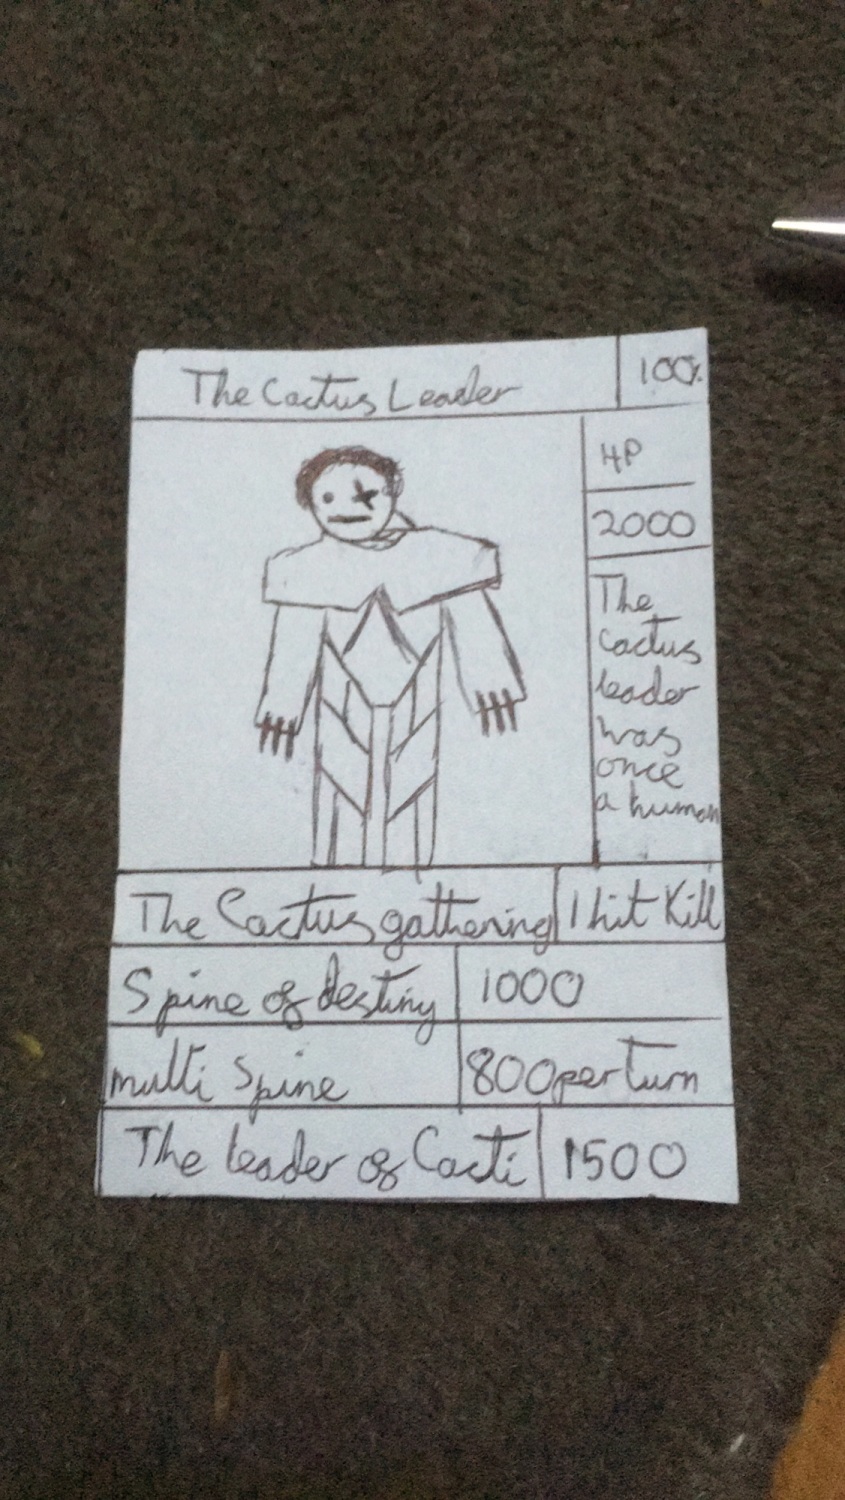 The Cactus Leader 100%
HP
2000
The
cactus
leader
was
once
a human
The Cactus gathering 1 hit Kill
Spine of destiny 1000
multi Spine 800 per Turn
The leader of Cacti 1500